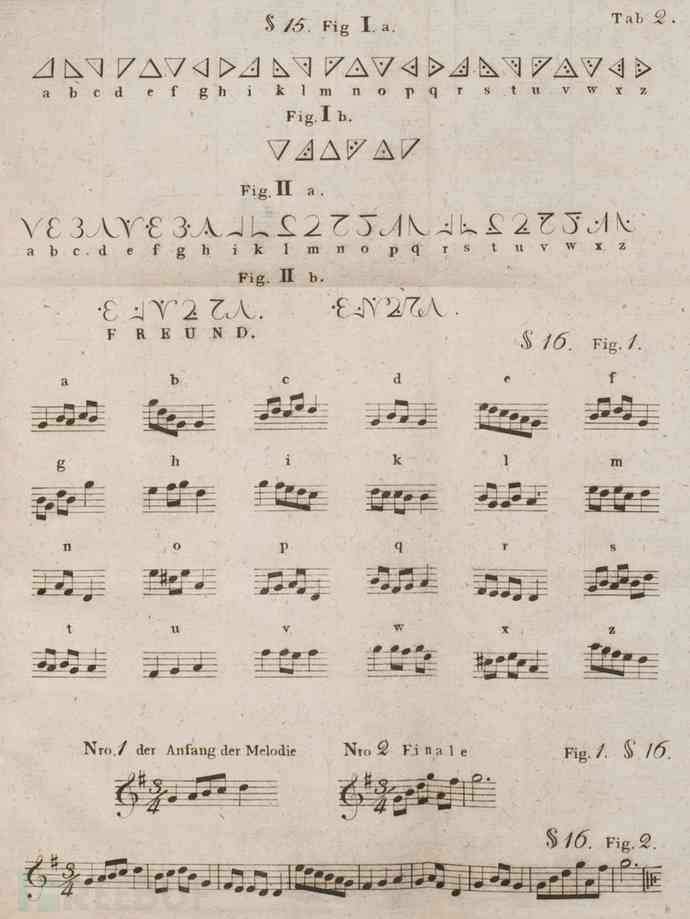 § 15. Fig I. a.
Tab 2.
a b c d e f g h i k l m n o p q r s t u v w x z
Fig. I b.
Fig. II a.
a b c d e f g h i k l m n o p q r s t u v w x z
Fig. II b.
F R E U N D.
§ 16. Fig. 1.
a b c d e f
g h i k l m
n o p q r s
t u v w x z
Nro. 1 der Anfang der Melodie
Nro 2 Finale
Fig. 1. § 16.
3/4
3/4
§ 16. Fig. 2.
3/4